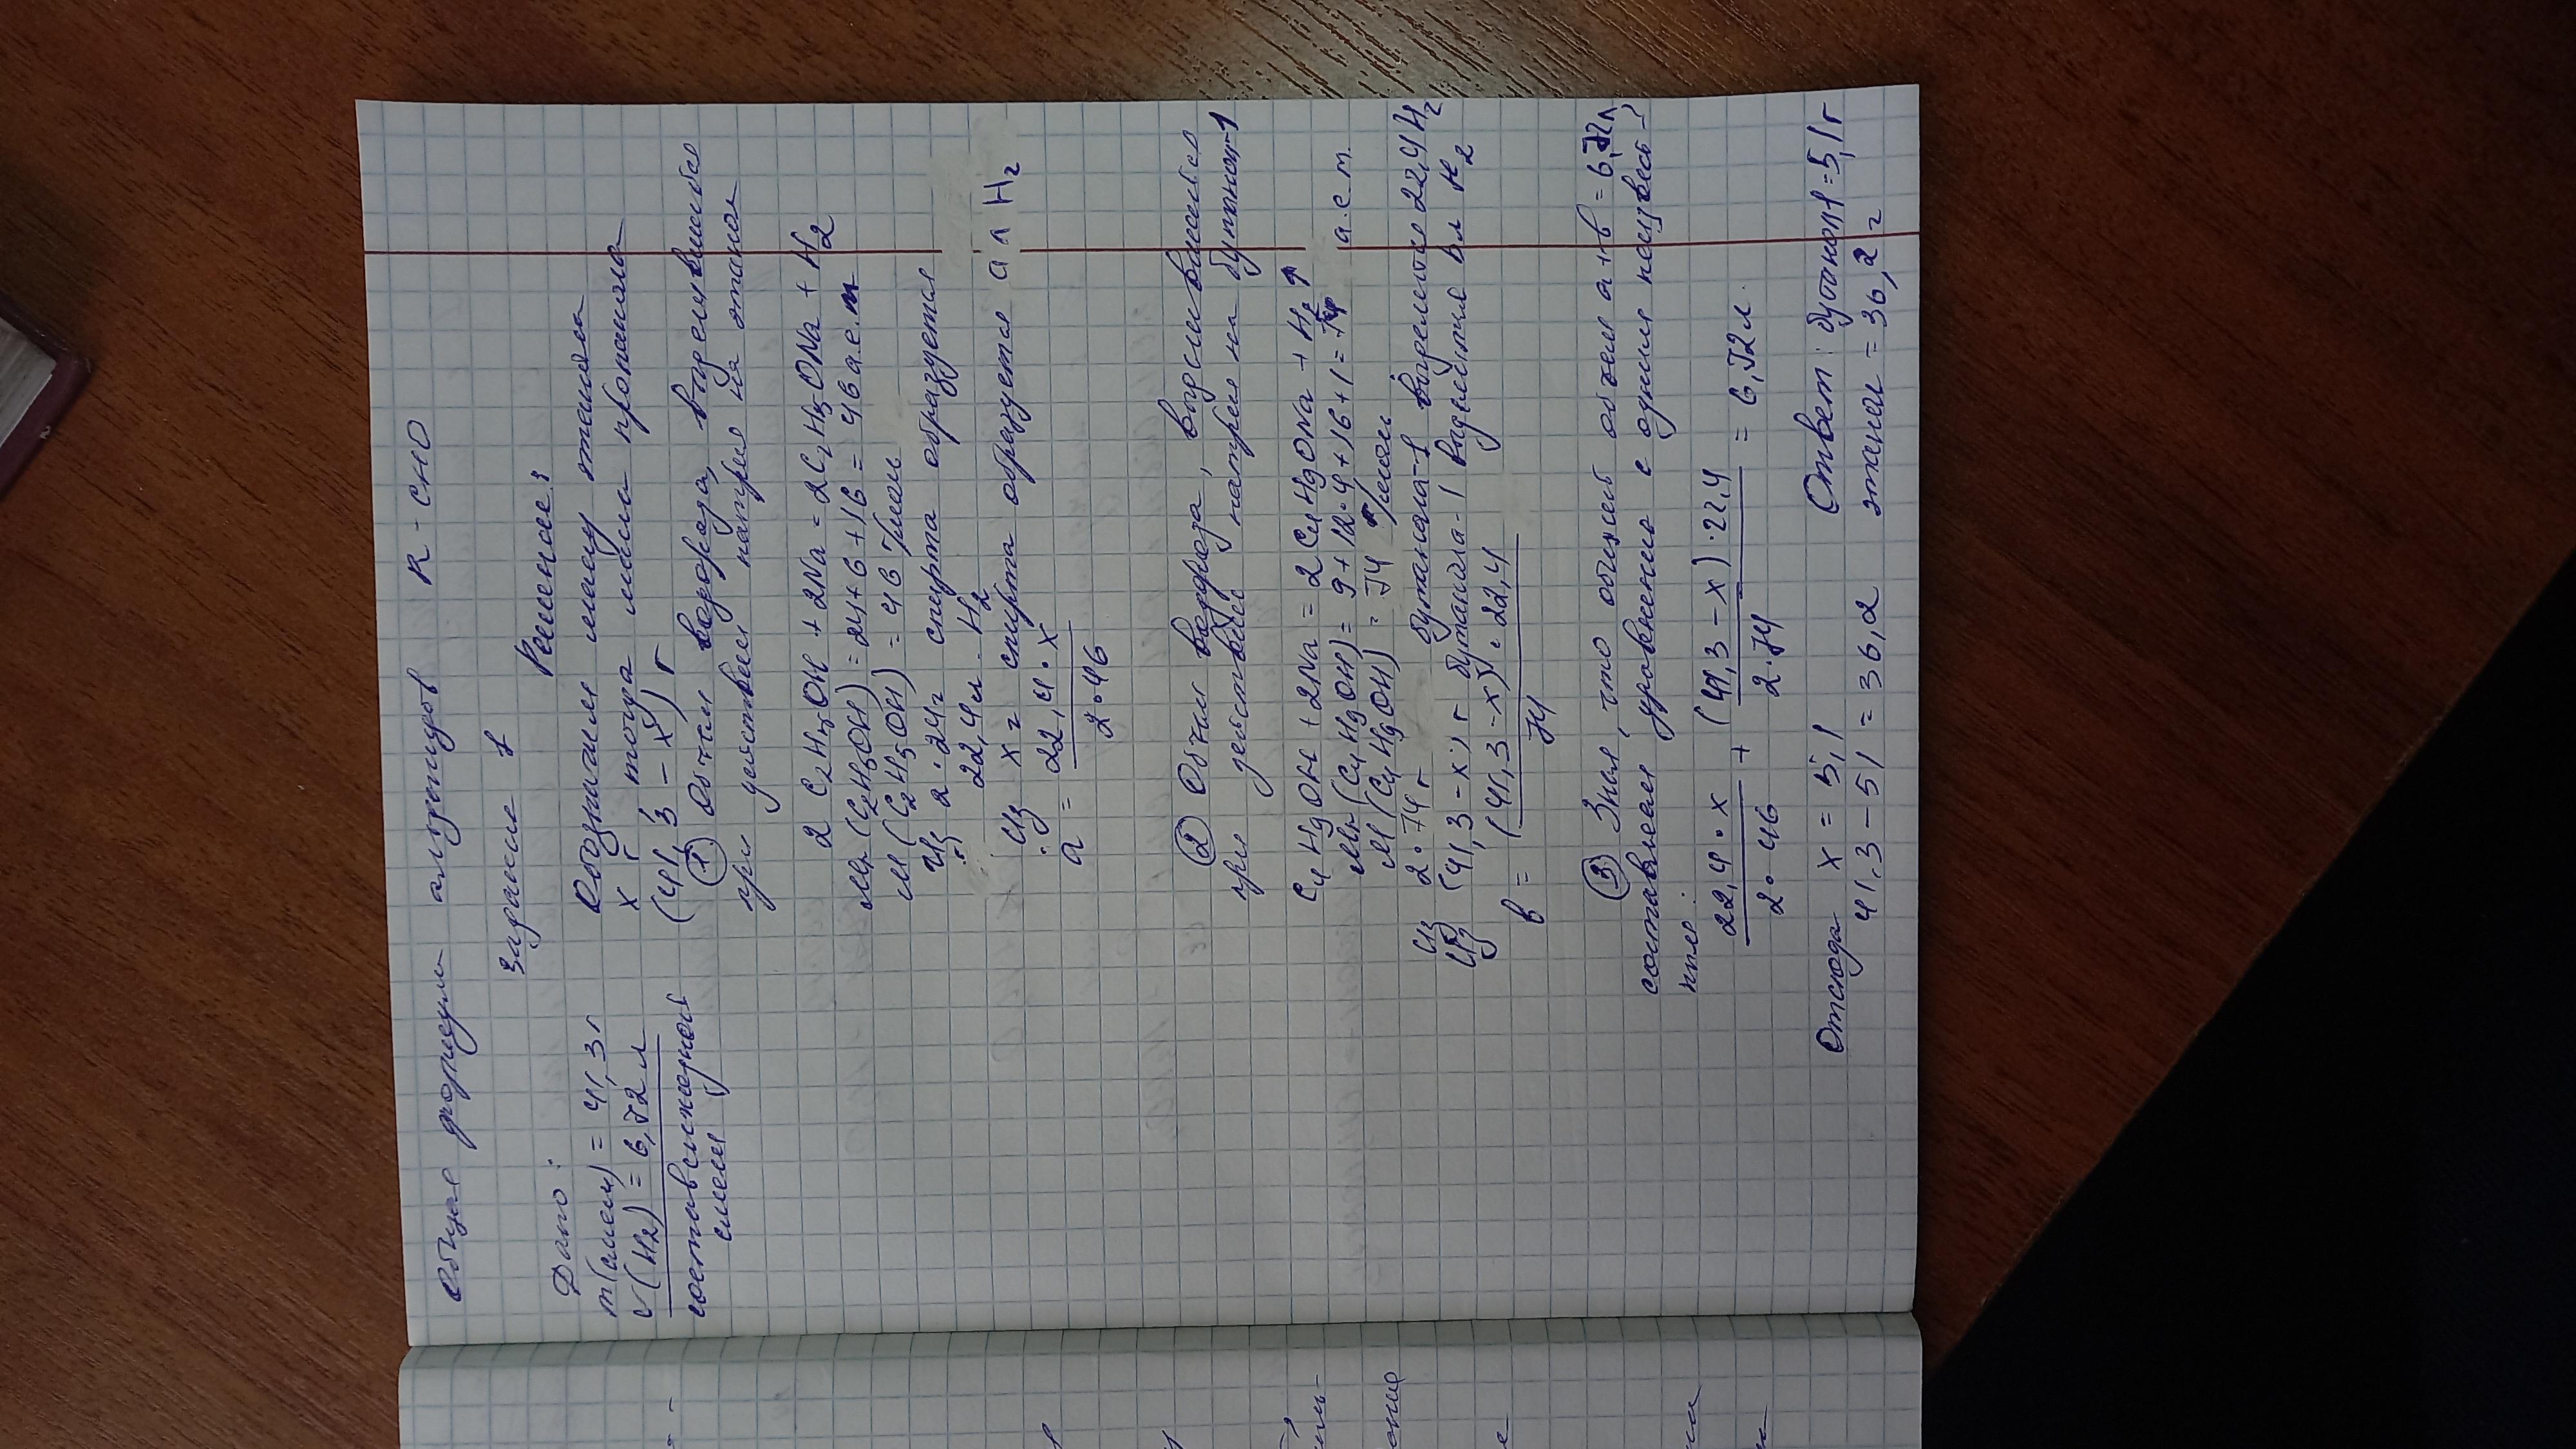 Общая формула альдегидов R - CHO
Задание 1
Дано:
m(смеси) = 41,3г
V(H2) = 6,72л
состав исходной
смеси
Решение:
Обозначим массу этанола
x г тогда масса пропанола
(41,3 - x) г
① Объем водорода, выделившийся
при действии натрия на этанол
2 C2H5OH + 2Na = 2C2H5ONa + H2
Mr(C2H5OH) = 24+6+16 = 46 а.е.м
M(C2H5OH) = 46 г/моль
Из 2·24г спирта образуется
22,4л H2
Из x г спирта образуется а л H2
a = 22,4·x
2·46
② Объем водорода, выделившийся
при действии натрия на бутанол-1
C4H9OH + 2Na = 2C4H9ONa + H2↑
Mr(C4H9OH) = 9+12·4+16+1 = 74 а.е.м.
M(C4H9OH) = 74 г/моль
Из 2·74г бутанола-1 выделяется 22,4 H2
Из (41,3-x) г бутанола-1 выделится вл H2
в = (41,3-x)·22,4
74
③ Зная, что общий объем а+в = 6,72л
составляем уравнение с одним неизвест-
ным:
22,4·x + (41,3-x)·22,4 = 6,72л.
2·46 2·74
Отсюда x = 5,1
41,3 - 51 = 36,2
Ответ: бутанол1=5,1г
этанол = 36,2г